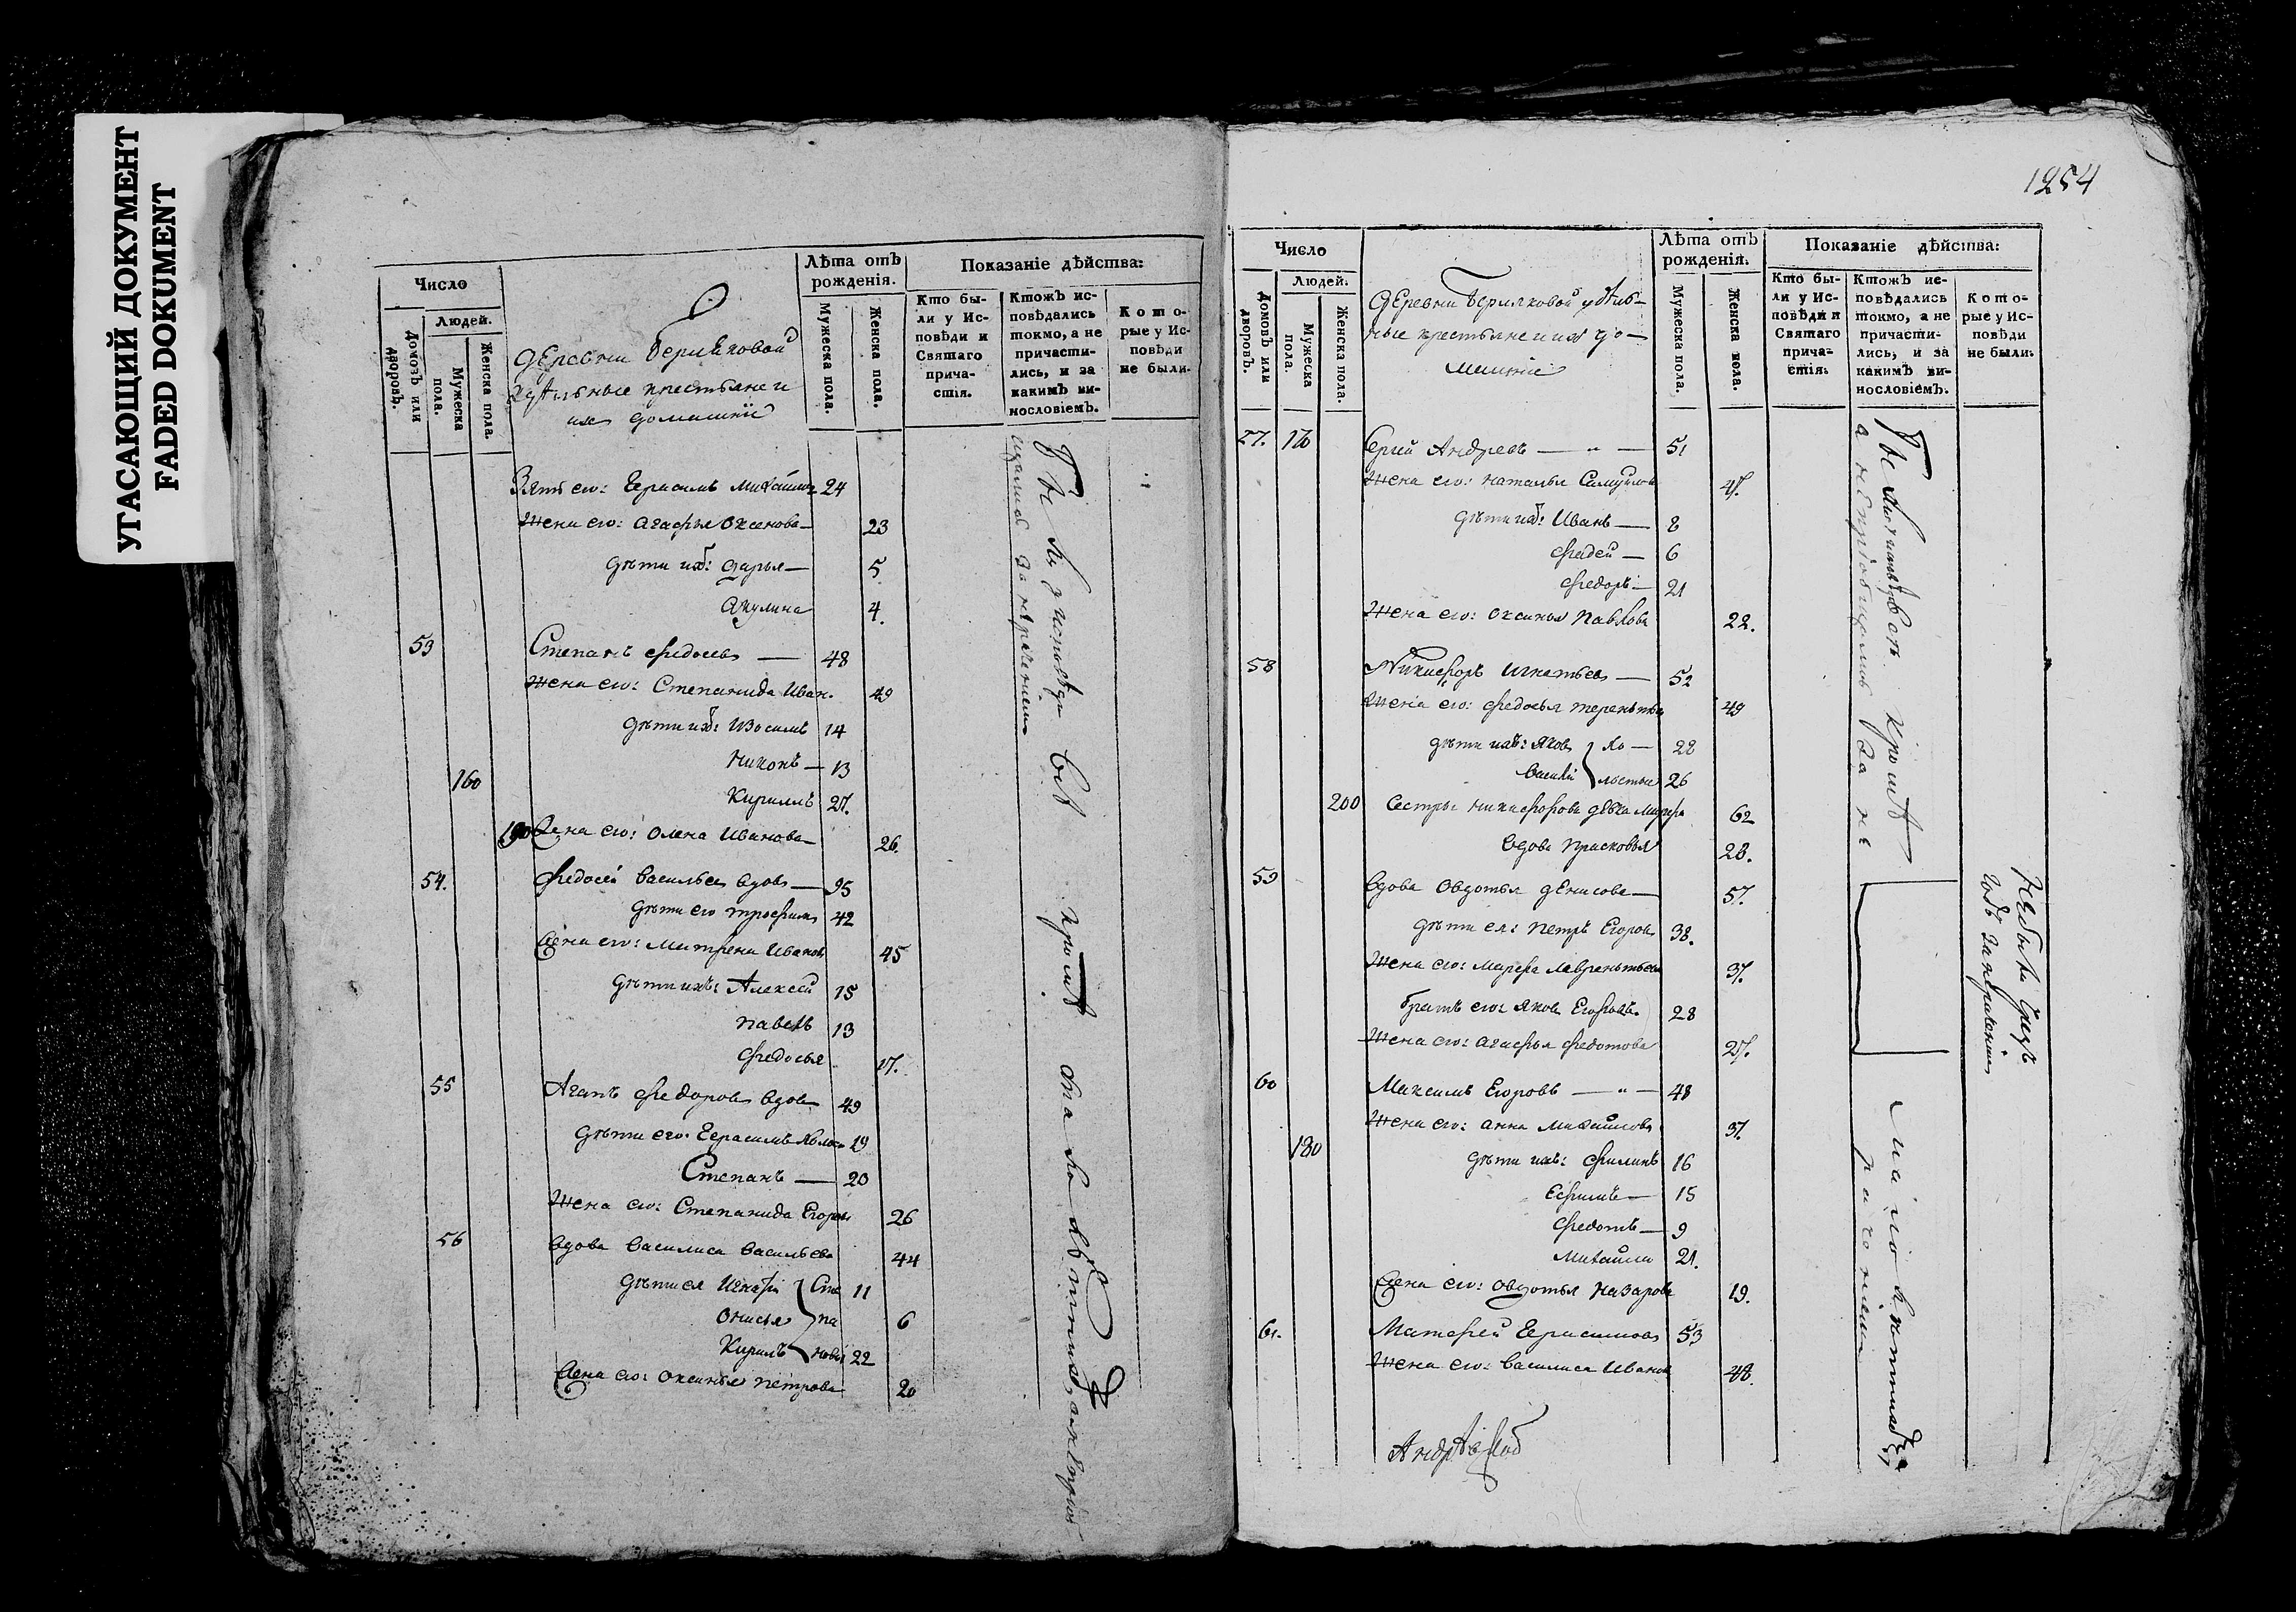 УГАСАЮЩИЙ ДОКУМЕНТ
FADED DOKUMENT
Число
Людей.
Домовъ или дворовъ.
Мужеска пола.
Женска пола.
деревни
удѣльные крестьяне и
их домашніе
Лѣта отъ рожденія.
Мужеска пола.
Женска пола.
Показаніе дѣйства:
Кто были у Исповѣди и Святаго причастія.
Ктожъ исповѣдались токмо, а не причастились, и за какимъ винословіемъ.
Которые у Исповѣди не были.
Зять его: Герасимъ 24
Жена его: Агафья 23
дѣти ихъ: дарья — 5
Акулина 4.
53 Степанъ федосеев — 48
Жена его: Степанида Иван. 49
дѣти ихъ: 14
Никонъ — 13
160 Кириллъ 27.
190 Жена его: Олена Иванова — 26.
54. федосей Васильев вдов — 95
дѣти его трофим 42
Жена его: Матрена Иванов 45
дѣти ихъ: Алексей 15
павелъ 13
федосья 17.
55 Агапъ федоров вдов 49
дѣти его: Герасимъ 19
Степанъ — 20
Жена его: Степанида Егоров 26
56 вдова Василиса Васильева 44
дѣти ея Игнатей } Сте 11
Онисья } па 6
Кирилъ } новы 22
Жена его: Оксинья петрова 20
кромѣ
1254
Число
Людей.
Домовъ или дворовъ.
Мужеска пола.
Женска пола.
деревни удѣль-
ные крестьяне и их до-
машніе
Лѣта отъ рожденія.
Мужеска пола.
Женска пола.
Показаніе дѣйства:
Кто были у Исповѣди и Святаго причастія.
Ктожъ исповѣдались токмо, а не причастились, и за какимъ винословіемъ.
Которые у Исповѣди не были.
57. 170 Сергей Андреевъ — " — 51
Жена его: наталья 47.
дѣти ихъ: Иванъ — 8
фадей — 6
федоръ — 21
Жена его: Оксинья павлова 22.
58 Никифоръ Игнатьев — 52
Жена его: федосья терентьев 49
дѣти ихъ: Яков } хо — 28
Василий } лостые 26
200 Сестры никифорова дѣвка марфа 62
вдова прасковья 28.
59 вдова Овдотья денисова — 57.
дѣти ея: петръ Егоров 38.
Жена его: марфа лаврентьева 37.
братъ его: Яков Егоровъ 28
Жена его: агафья федотова 27.
60 Максимъ Егоровъ — " — 48
Жена его: анна михайлова 37.
180 дѣти ихъ: филипъ 16
Ефимъ — 15
федотъ — 9
михайла 21.
Жена его: Овдотья назарова 19.
61. Матвей Герасимов 53
Жена его: Василиса Иванов 48.
кромѣ